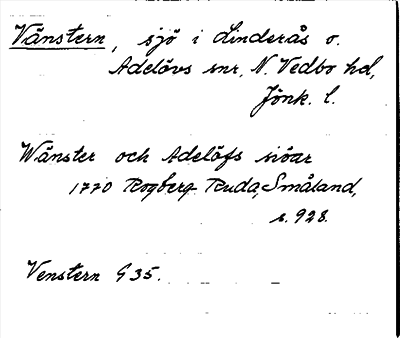 Vänstern, sjö i Linderås o.
Adelövs snr, N. Vedbo hd,
Jönk. l.
Wänster och Adelöfs siöar
1770 Rogberg Ruda, Småland,
s. 928.
Venstern G 35.